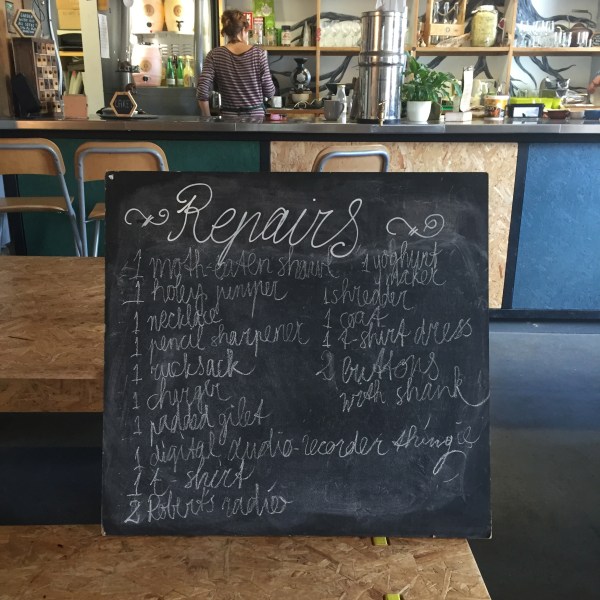 Repairs
1 moth-eaten shawl
1 holey jumper
1 necklace
1 pencil sharpener
1 rucksack
1 charger
1 padded gilet
1 digital audio-recorder thingie
1 t-shirt
2 Roberts radio
1 yoghurt
maker
1 shredder
1 coat
1 t-shirt dress
2 buttons
with shank